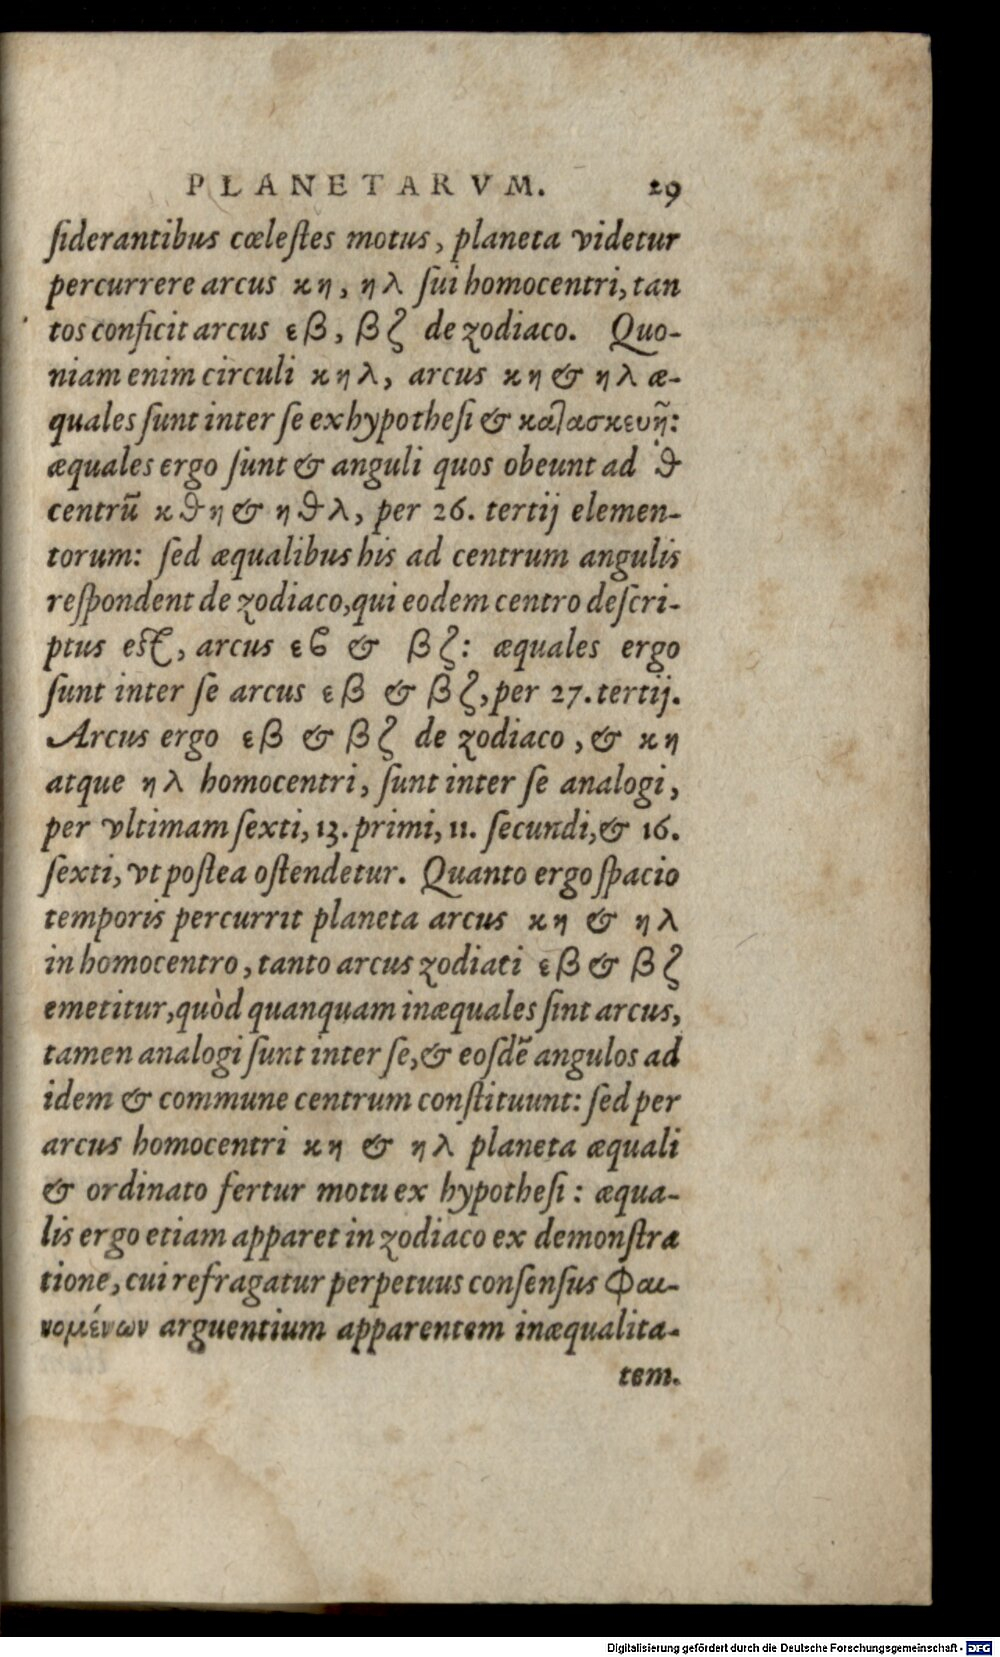 PLANETARVM. 29
ſiderantibus cœleſtes motus, planeta videtur
percurrere arcus κη, ηλ ſui homocentri, tan
tos conficit arcus εβ, βζ de zodiaco. Quo-
niam enim circuli κηλ, arcus κη & ηλ æ-
quales ſunt inter ſe ex hypotheſi & καταſκευῆ:
æquales ergo ſunt & anguli quos obeunt ad ϑ
centrũ κϑη & ηϑλ, per 26. tertij elemen-
torum: ſed æqualibus his ad centrum angulis
reſpondent de zodiaco, qui eodem centro deſcri-
ptus eſt, arcus εϐ & βζ: æquales ergo
ſunt inter ſe arcus εβ & βζ, per 27. tertij.
Arcus ergo εβ & βζ de zodiaco, & κη
atque ηλ homocentri, ſunt inter ſe analogi,
per vltimam ſexti, 13. primi, 11. ſecundi, & 16.
ſexti, vt poſtea oſtendetur. Quanto ergo ſpacio
temporis percurrit planeta arcus κη & ηλ
in homocentro, tanto arcus zodiati εβ & βζ
emetitur, quòd quanquam inæquales ſint arcus,
tamen analogi ſunt inter ſe, & eoſdẽ angulos ad
idem & commune centrum conſtituunt: ſed per
arcus homocentri κη & ηλ planeta æquali
& ordinato fertur motu ex hypotheſi: æqua-
lis ergo etiam apparet in zodiaco ex demonſtra
tione, cui refragatur perpetuus conſenſus Φαι-
νομένων arguentium apparentem inæqualita-
tem.
Digitalisierung gefördert durch die Deutsche Forschungsgemeinschaft - DFG